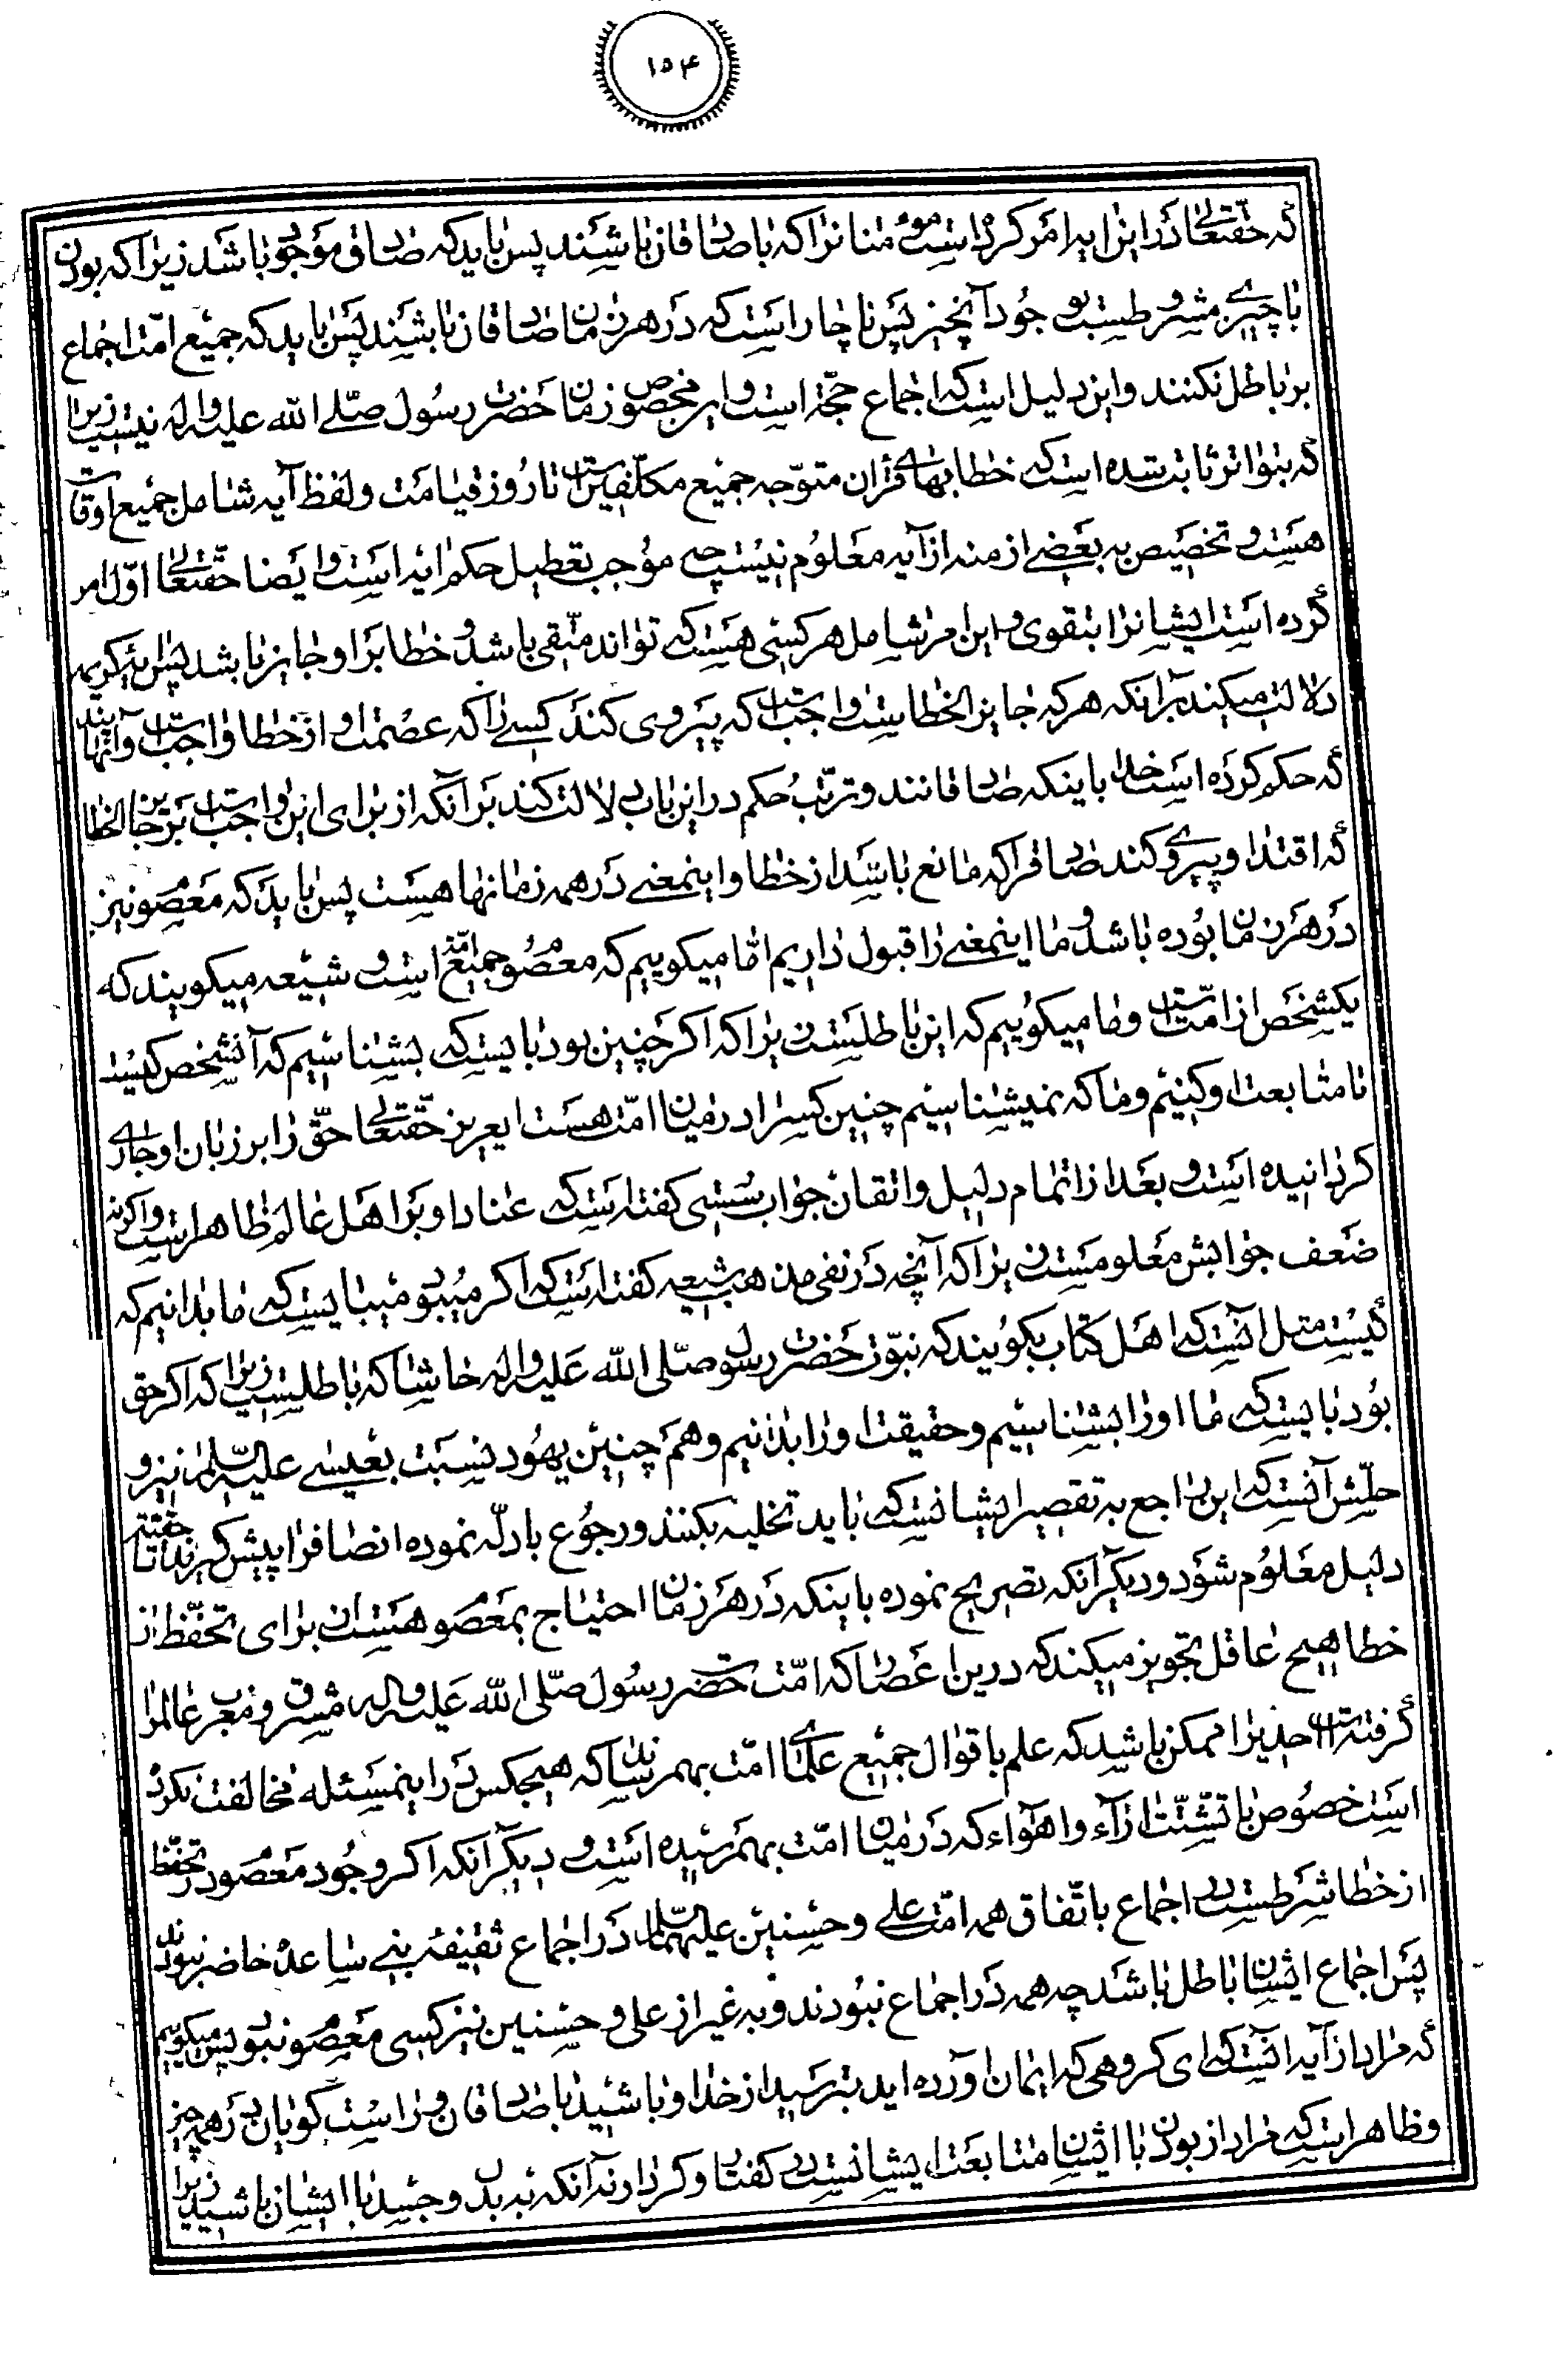 ۱۵۴
که حقتعالی در این ایه امر کرده است مؤمنانرا که با صادقان باشند پس باید که صادق موجود باشد زیرا که بودن
با چیزے مشروطست بوجود آنچیز پس ناچار است که در هر زمان صادقان باشند پس باید که جمیع امت اجماع
بر باطل نکنند و این دلیل است که اجماع حجة است و این مخصوص زمان حضرت رسول صلے الله علیه واله نیست زیرا
که بتواتر ثابت شده است که خطابهاے قرآن متوجه جمیع مکلفین است تا روز قیامت و لفظ آیه شامل جمیع اوقات
هست و تخصیص به بعضے ازمنه از آیه معلوم نیست چه موجب تعطیل حکم ایه است و ایضا حقتعالی اول امر
کرده است ایشانرا بتقوی و این امر شامل هر کسی هست که تواند متقی باشد و خطا بر او جایز باشد پس آیه کریمه
دلالت میکند بر انکه هر که جایز الخطاست واجب است که پیروی کند کسے را که عصمت او از خطا واجب است و آنها یند
که حکم کرده است خدا باینکه صادقانند و ترتب حکم در این باب دلالت کند بر آنکه از برای این واجب است بر جایز الخطا
که اقتدا و پیروے کند صادقرا که مانع باشد از خطا و اینمعنے در همه زمانها هست پس باید که معصوم نیز
در هر زمان بوده باشد و ما اینمعنے را قبول داریم اما میکوییم که معصوم جمیع امة است و شیعه میکویند که
یکشخص از امت است و ما میکوییم که این باطلست زیرا که اکر چنین بود بایست که بشناسیم که آنشخص کیست
تا متابعت او کنیم و ما که نمیشناسیم چنین کسرا در میان امت هست ایعزیز حقتعالی حق را بر زبان او جارے
کردانیده است و بعد از اتمام دلیل و اتقان جواب سستی کفته است که عناد او بر اهل عالم ظاهر است و اکرنه
ضعف جوابش معلومست زیرا که آنچه در نفی مذهب شیعه کفته است که اکر میبود میبایست که ما بدانیم که
کیست مثل انست که اهل کتاب بکویند که نبوت حضرت رسول صلی الله علیه واله حاشا که باطلست زیرا که اکر حق
بود بایست که ما او را بشناسیم و حقیقت او را بدانیم و همچنین یهود نسبت بعیسے علیه السلام نیز و
حلش آنست که این راجع به تقصیر ایشانست که باید تخلیه بکنند و رجوع بادله نموده انصافرا پیش کیرند تا حقیقت
دلیل معلوم شود و دیکر آنکه تصریح نموده باینکه در هر زمان احتیاج بمعصوم هست از برای تحفظ از
خطا هیچ عاقل تجویز میکند که در این عصرها که امت حضرت رسول صلی الله علیه واله مشرق و مغرب عالمرا
کرفته است احدیرا ممکن باشد که علم باقوال جمیع علماے امت بهم رساند که هیچکس در اینمسئله مخالفت نکرده
است خصوص با تشتت اراء و اهواء که در میان امت بهم رسیده است و دیکر آنکه اکر وجود معصوم در تحفظ
از خطا شرطست در اجماع باتفاق همه امت علے و حسنین علیهم السلام در اجماع ثقیفه بنے ساعده حاضر نبودند
پس اجماع ایشان باطل باشد چه همه در اجماع نبودند و به غیر از علی و حسنین نیز کسی معصوم نبود پس میکوییم
که مراد از آیه انست که ای کروهی که ایمان اورده اید بترسید از خدا و باشید با صادقان و راست کویان در همه چیز
و ظاهر است که مراد از بودن با ایشان متابعت ایشانست در کفتار و کردار نه آنکه به بدن و جسد با ایشان باشید زیرا